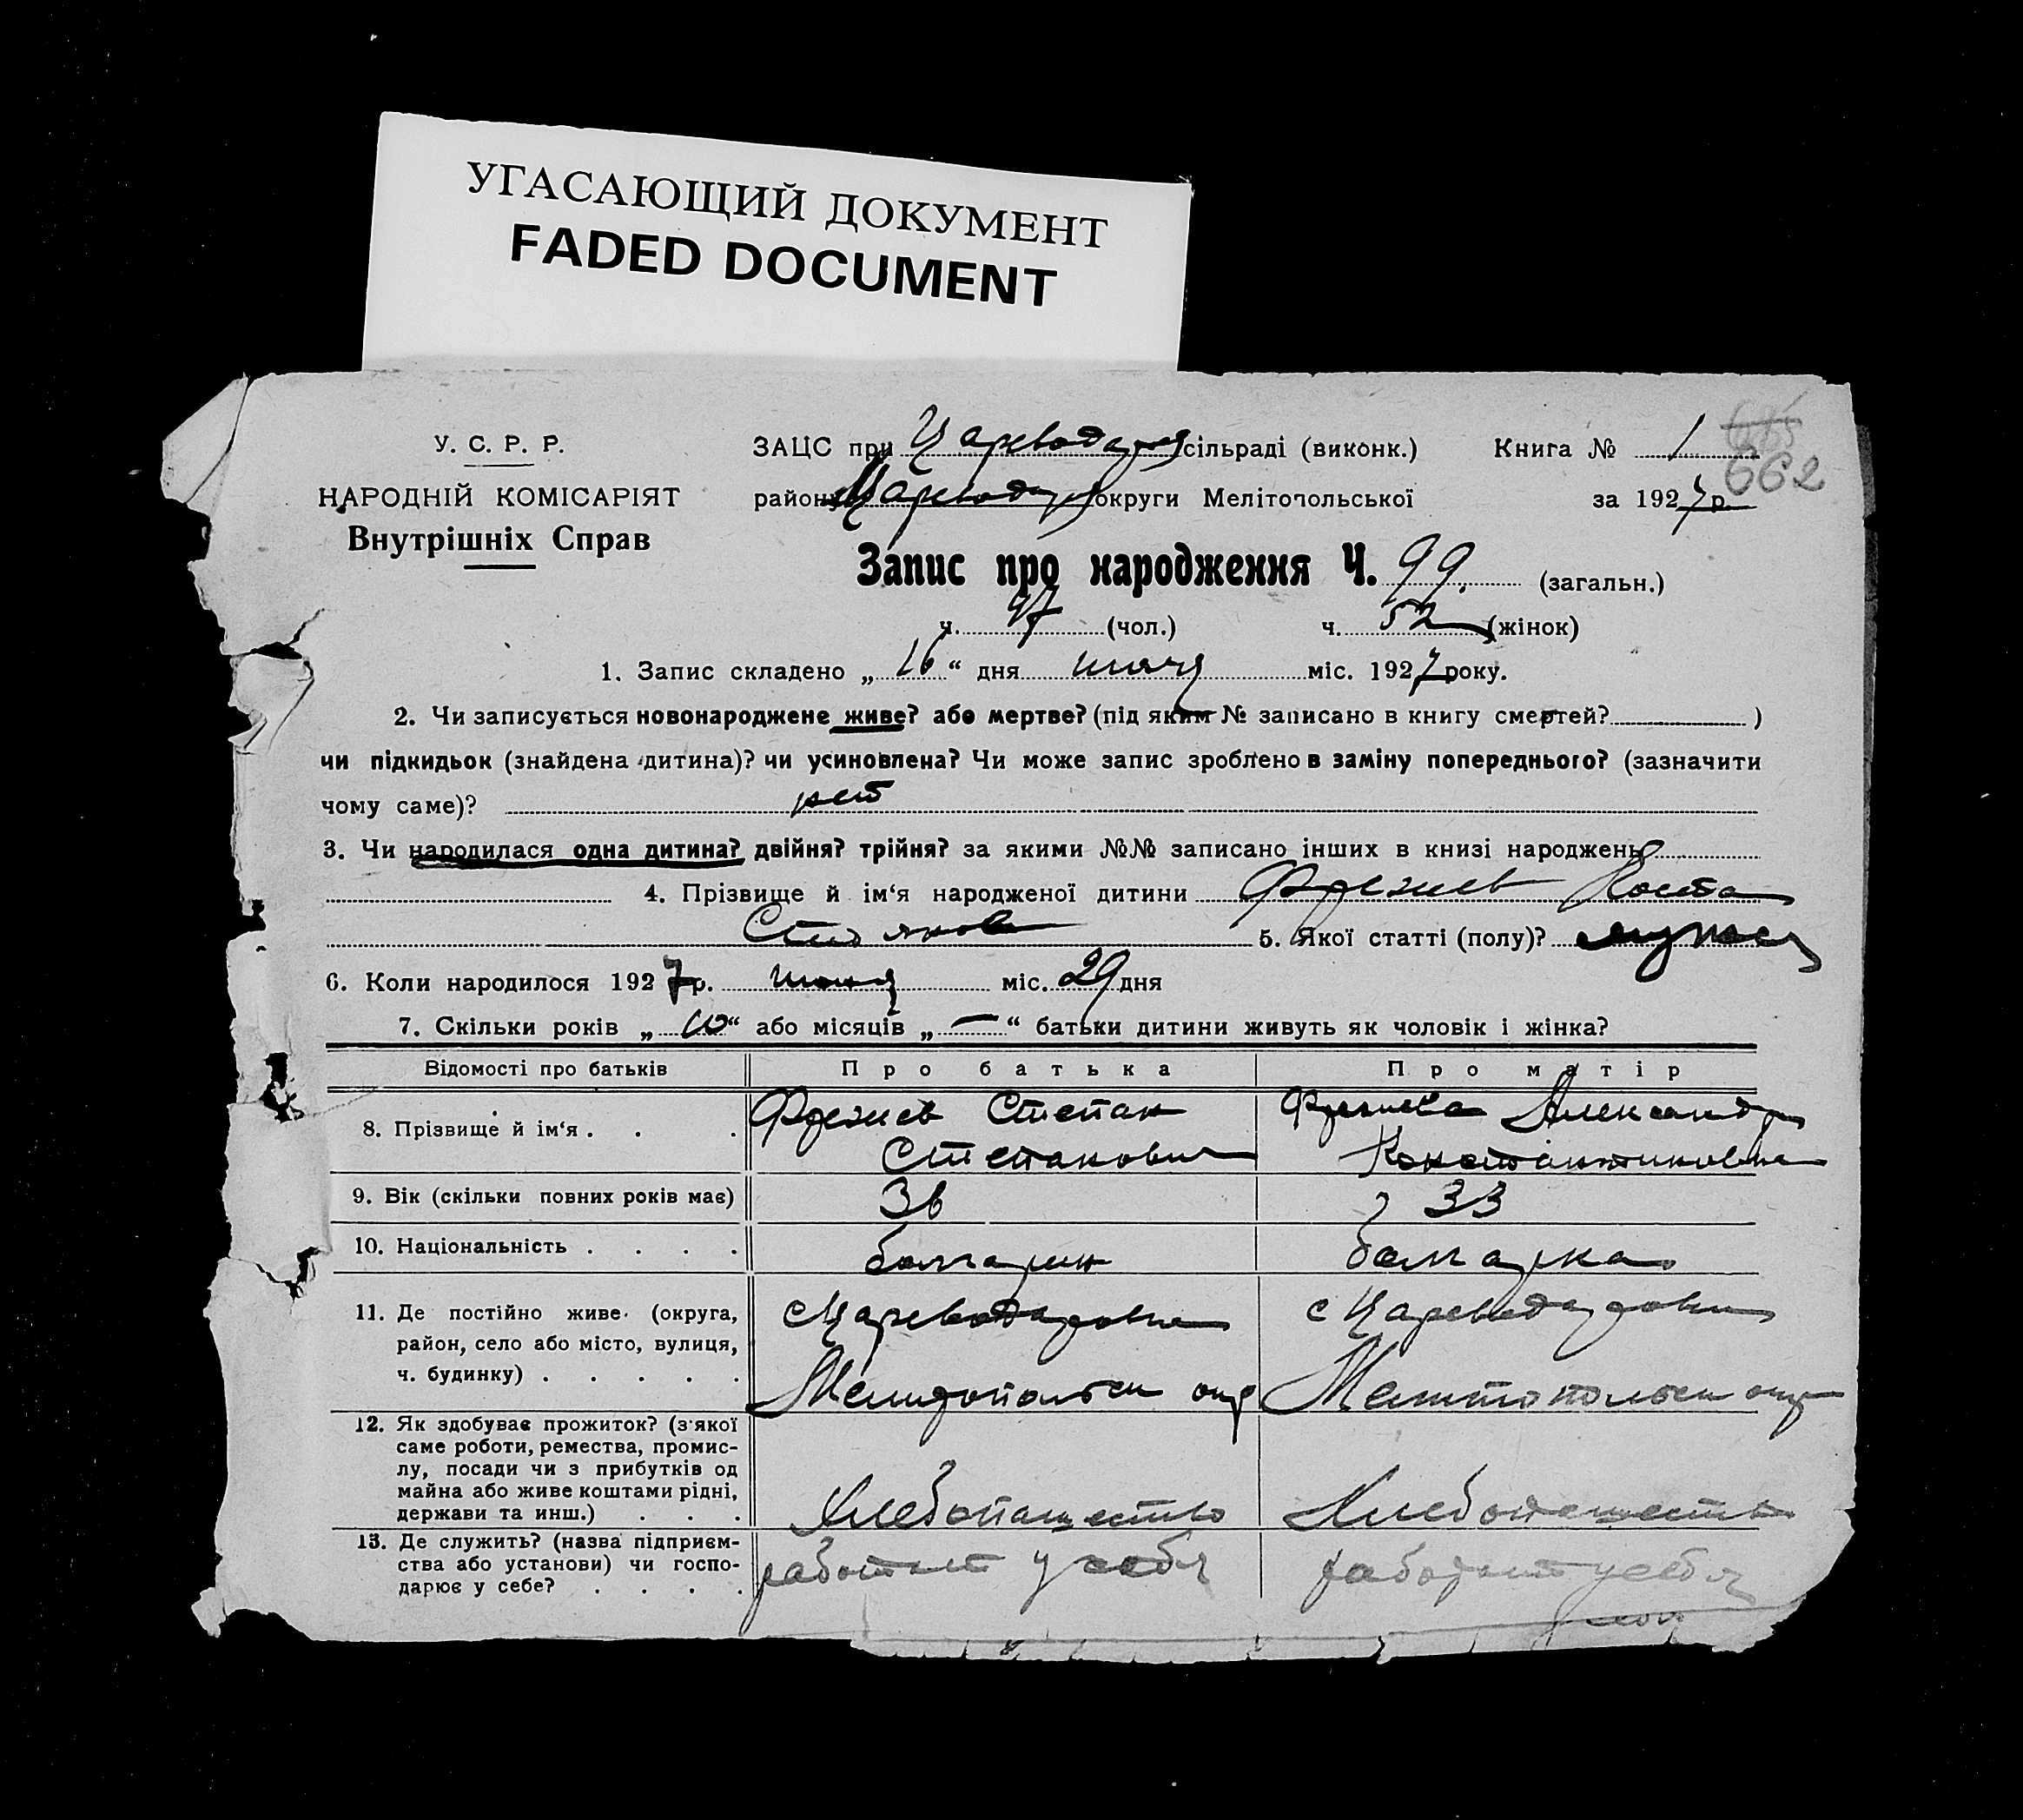 УГАСАЮЩИЙ ДОКУМЕНТ
FADED DOCUMENT
У. С. Р. Р.
НАРОДНІЙ КОМІСАРІЯТ
Внутрішніх Справ
ЗАЦС при сільраді (виконк.) Книга № 1
662
району округи Мелітопольської за 1927 р.
Запис про народження Ч. 99. (загальн.)
ч. 47 (чол.) ч. 52 (жінок)
1. Запис складено „ 16 “ дня міс. 1927 року.
2. Чи записується новонароджене живе? або мертве? (під яким № записано в книгу смертей? )
чи підкидьок (знайдена дитина)? чи усиновлена? Чи може запис зроблено в заміну попереднього? (зазначити
чому саме)? нет
3. Чи народилася одна дитина? двійня? трійня? за якими №№ записано інших в книзі народжень
4. Прізвище й ім‘я народженої дитини Коста
5. Якої статті (полу)?
6. Коли народилося 1927 р. июня міс. 29 дня
7. Скільки років „ 10 “ або місяців „ — “ батьки дитини живуть як чоловік і жінка?
Відомості про батьків Про батька Про матір
8. Прізвище й ім‘я . . . Степан Александра
Степанович Константиновна
9. Вік (скільки повних років має) 36 33
10. Національність . . . . болгарин болгарка
11. Де постійно живе (округа, с Цареводаровка с Цареводаровка
район, село або місто, вулиця,
ч. будинку) . . . . . Мелитопольск окр Мелитопольск окр
12. Як здобуває прожиток? (з якої
саме роботи, ремества, промис-
лу, посади чи з прибутків од
майна або живе коштами рідні,
держави та инш.) . . . Хлебопашество Хлебопашество
13. Де служить? (назва підприєм-
ства або установи) чи госпо-
дарює у себе? . . . . работает у себя работает у себя